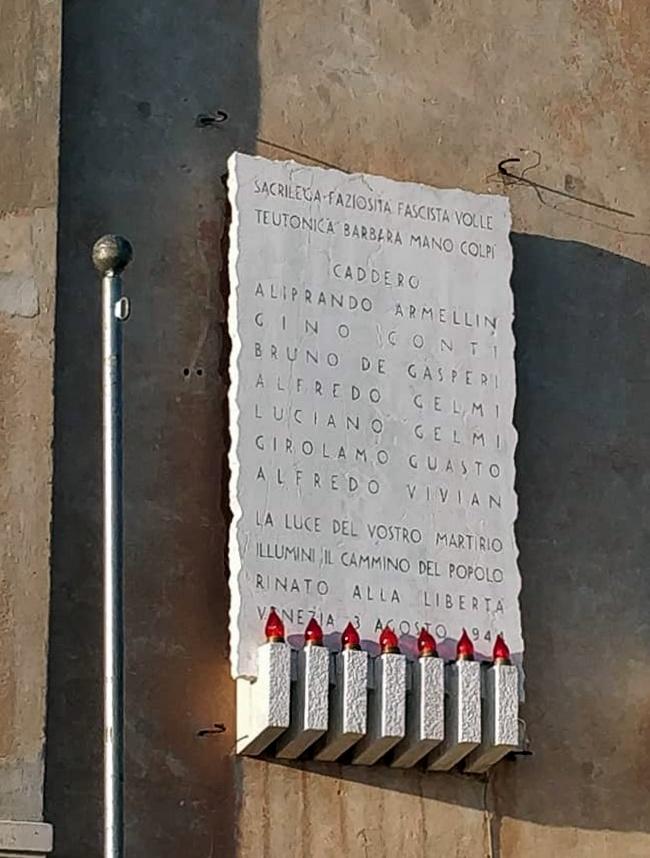 SACRILEGA·FAZIOSITÀ FASCISTA VOLLE
TEUTONICA BARBARA MANO COLPÌ
CADDERO
ALIPRANDO ARMELLIN
GINO CONTI
BRUNO DE GASPERI
ALFREDO GELMI
LUCIANO GELMI
GIROLAMO GUASTO
ALFREDO VIVIAN
LA LUCE DEL VOSTRO MARTIRIO
ILLUMINI IL CAMMINO DEL POPOLO
RINATO ALLA LIBERTÀ
VENEZIA 3 AGOSTO 1944